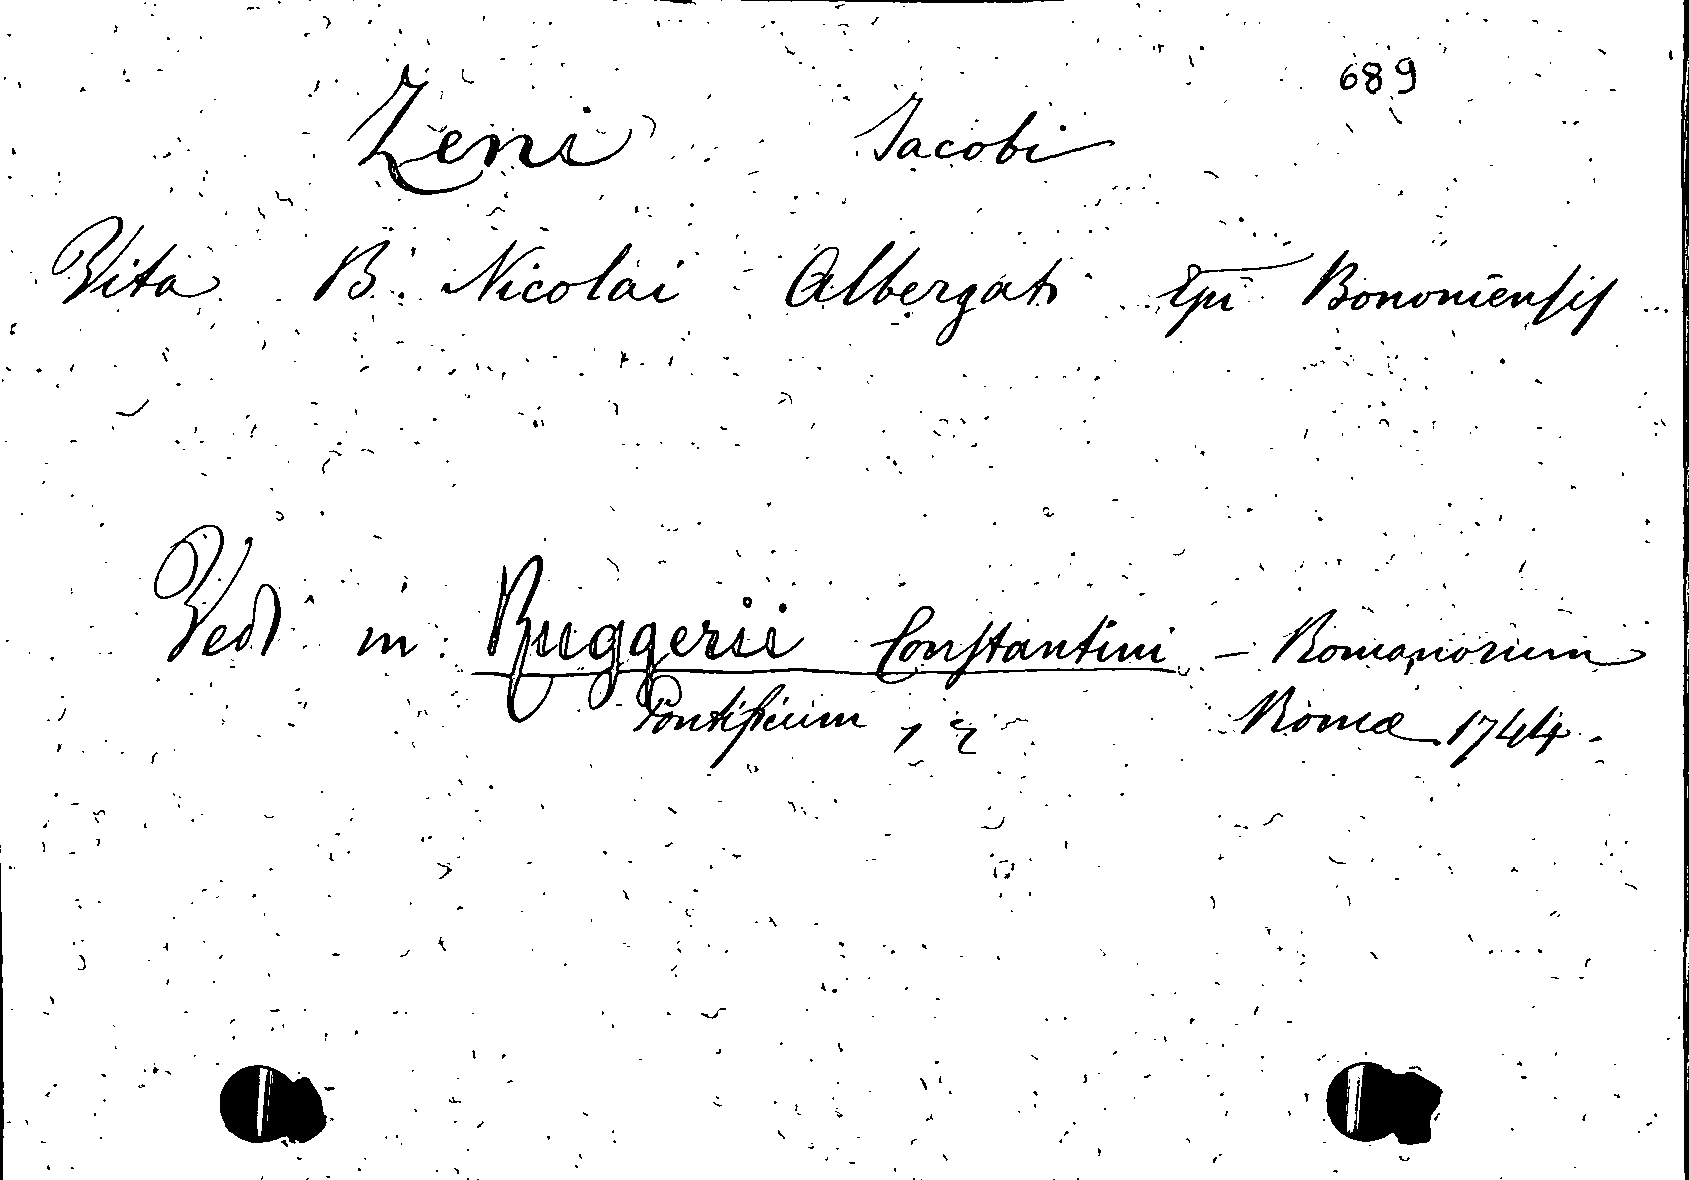 689
Zeni Jacobi
Vita B. Nicolai Albergati Epi Bononiensis
Vedi in: Ruggerii Constantini - Romanorum
Pontificum, &. Romæ 1744.